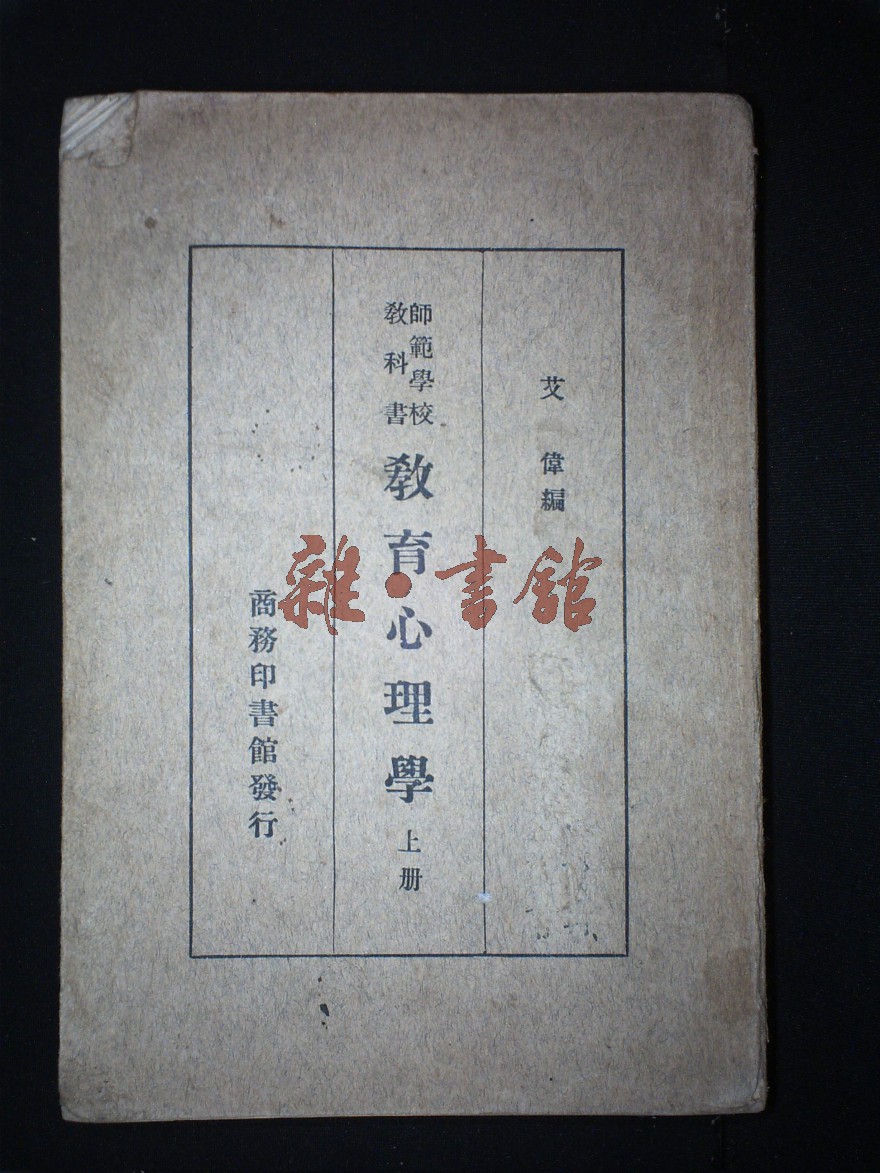 艾偉編
師範學校
敎科書
敎育心理學 上册
商務印書館發行
雜·書館